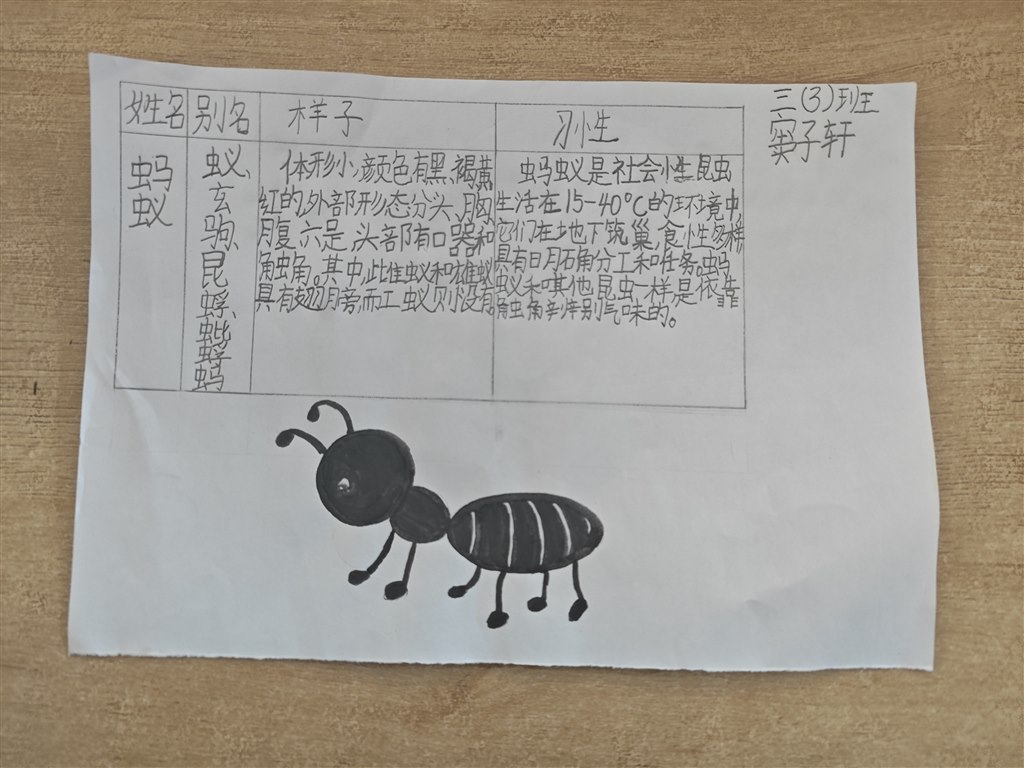 三(3)班
窦子轩
姓名 别名 样子 习性
蚂
蚁
蚁、
玄
驹、
昆
蜉、
蚍蜉
蚂
体形小,颜色有黑、褐、黄、
红的,外部形态分头、胸、
腹、六足,头部有口器和
触角。其中,此雌蚁和雄蚁
具有翅膀,而工蚁则没有
蚂蚁是社会性昆虫
生活在15-40℃的环境中,
它们在地下筑巢,食性
具有明确分工和任务。蚂
蚁和其他昆虫一样是依靠
触角辨别气味的。